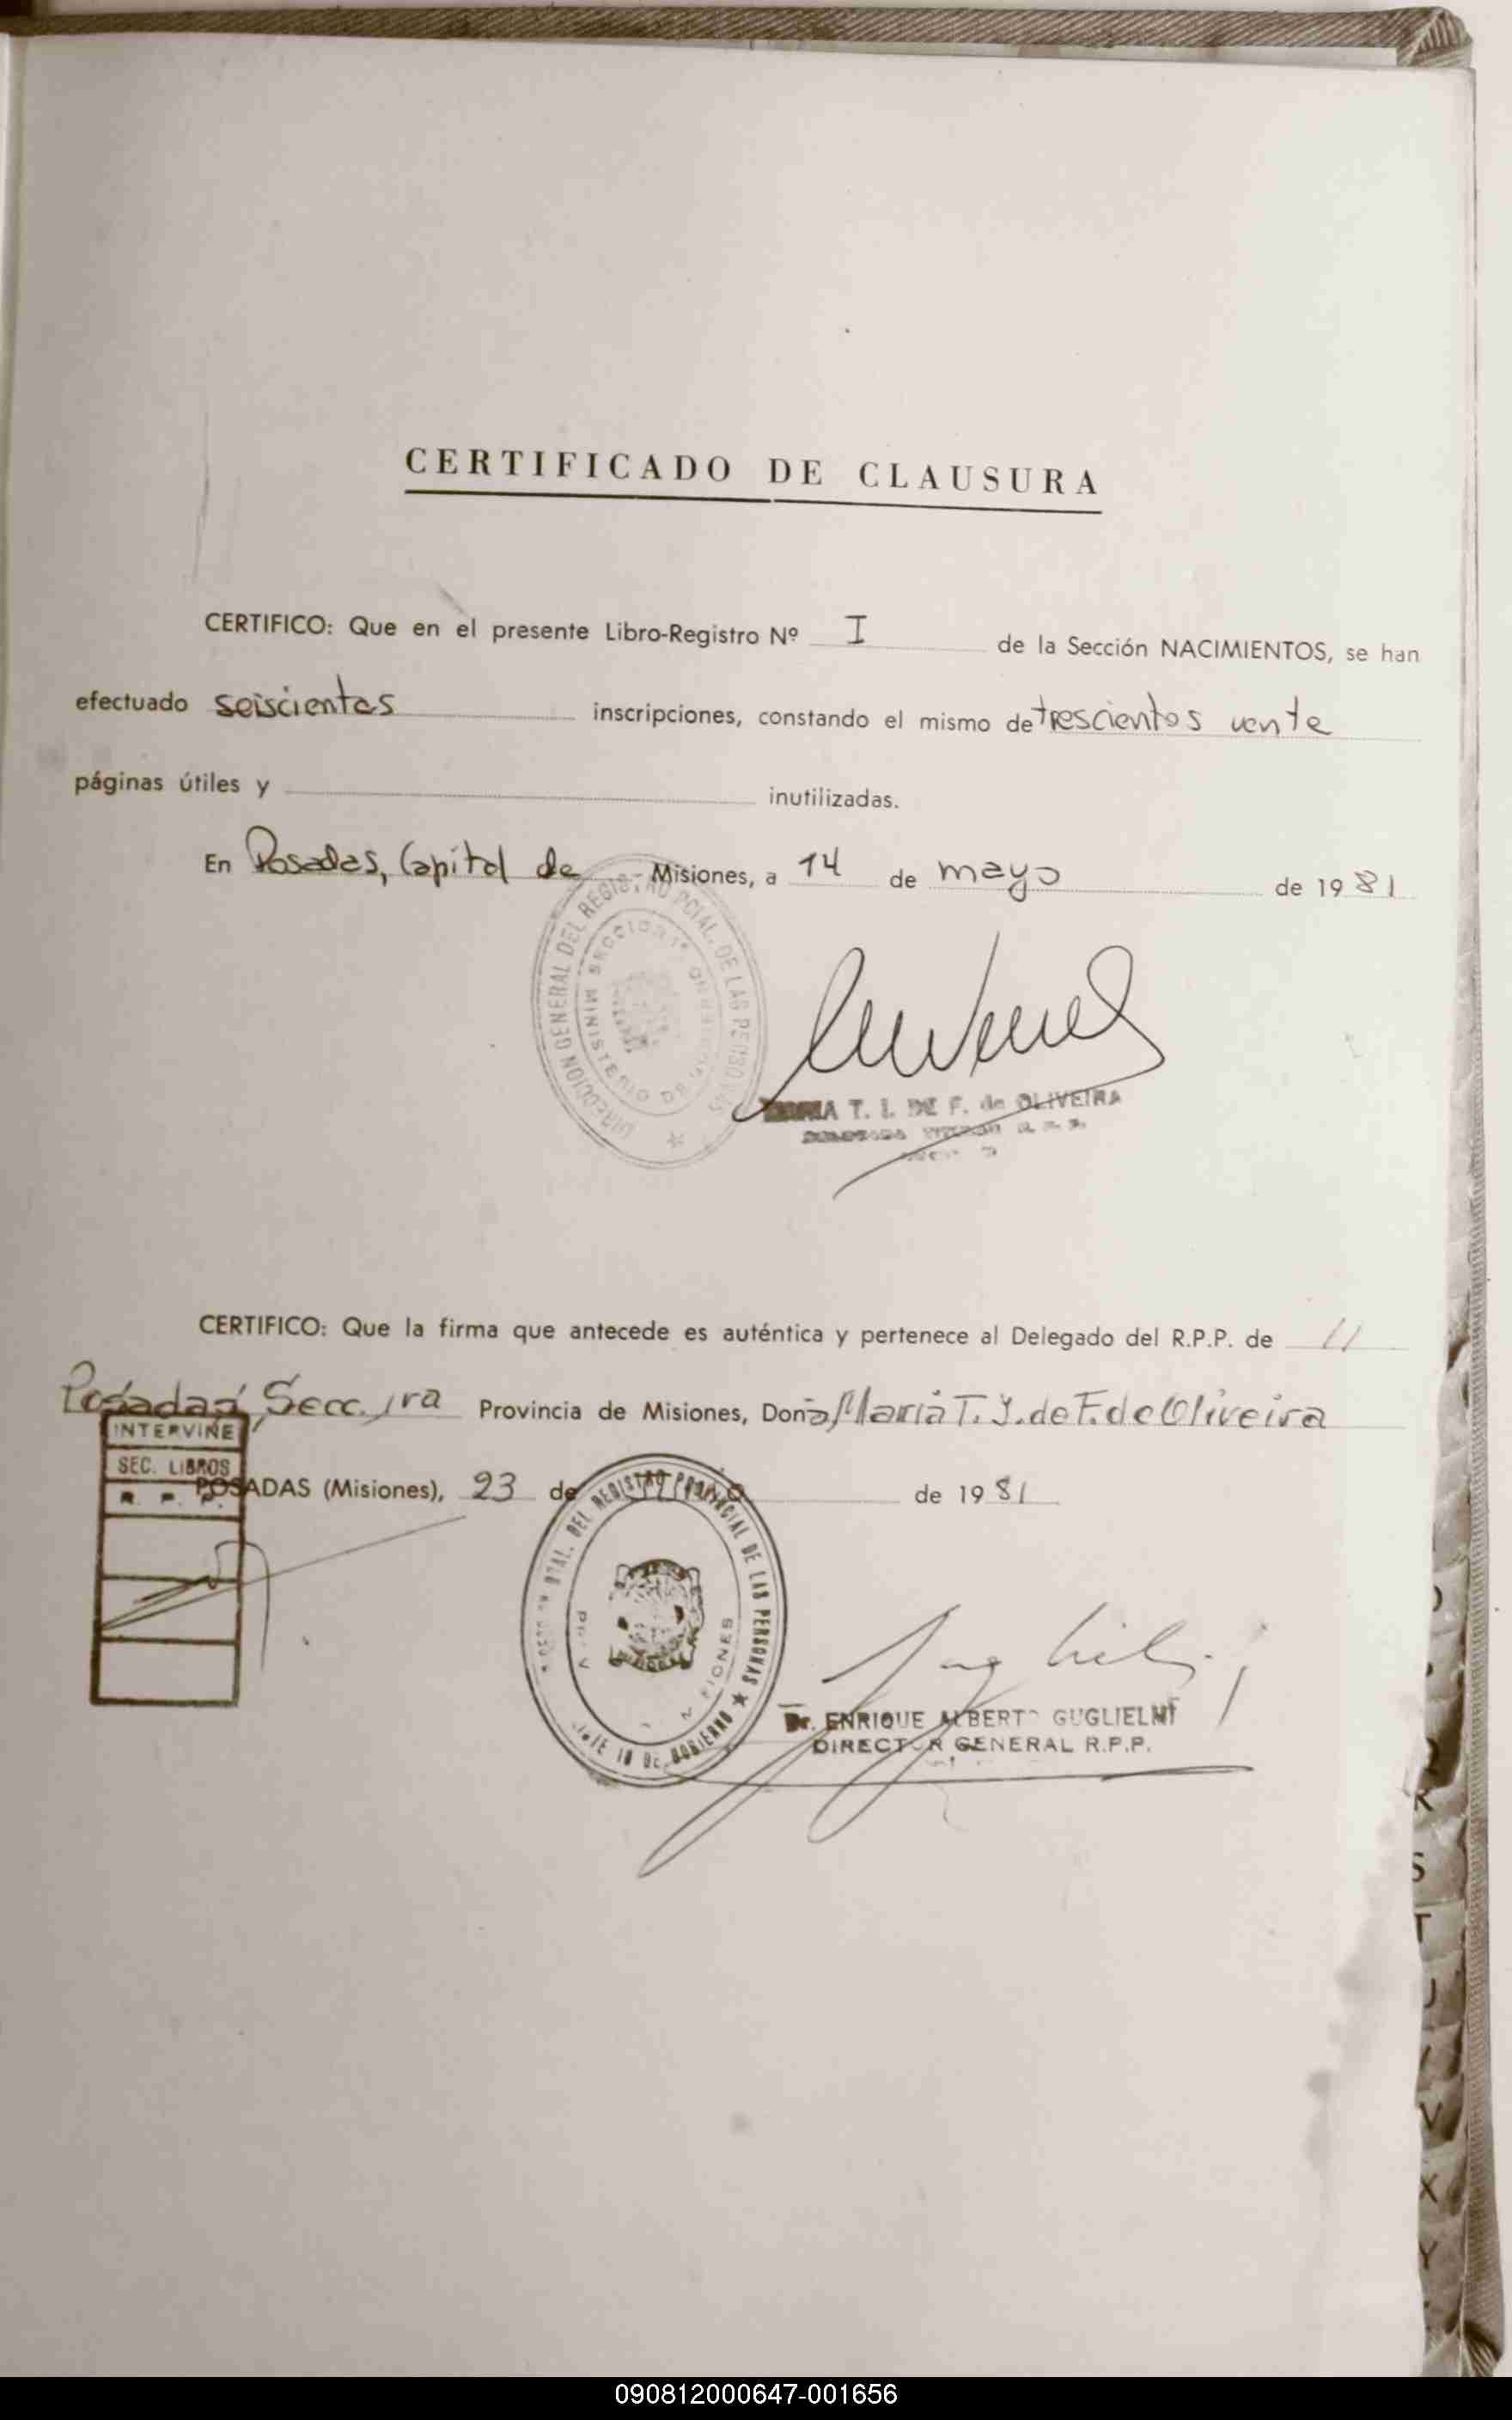 CERTIFICADO DE CLAUSURA
CERTIFICO: Que en el presente Libro-Registro Nº I de la Sección NACIMIENTOS, se han
efectuado seiscientas inscripciones, constando el mismo de trescientos vente
páginas útiles y inutilizadas.
En Posadas, Capital de Misiones, a 14 de mayo de 1981
DIRECCION GENERAL DEL REGIS PCIAL. DE LAS PERSONAS
MINISTERIO DE
T. I. DE F. de OLIVEIRA
CERTIFICO: Que la firma que antecede es auténtica y pertenece al Delegado del R.P.P. de
Posadas, Secc. 1ra Provincia de Misiones, Doña María T. I. de F. de Oliveira
INTERVINE
SEC. LIBROS
R. P. P.
POSADAS (Misiones), 23 de de 1981
DEL REGISTRO PROVINCIAL DE LAS PERSONAS ★ DE GOBIERNO
Dr. ENRIQUE ALBERTO GUGLIELMI
DIRECTOR GENERAL R.P.P.
S
T
V
X
Y
090812000647-001656